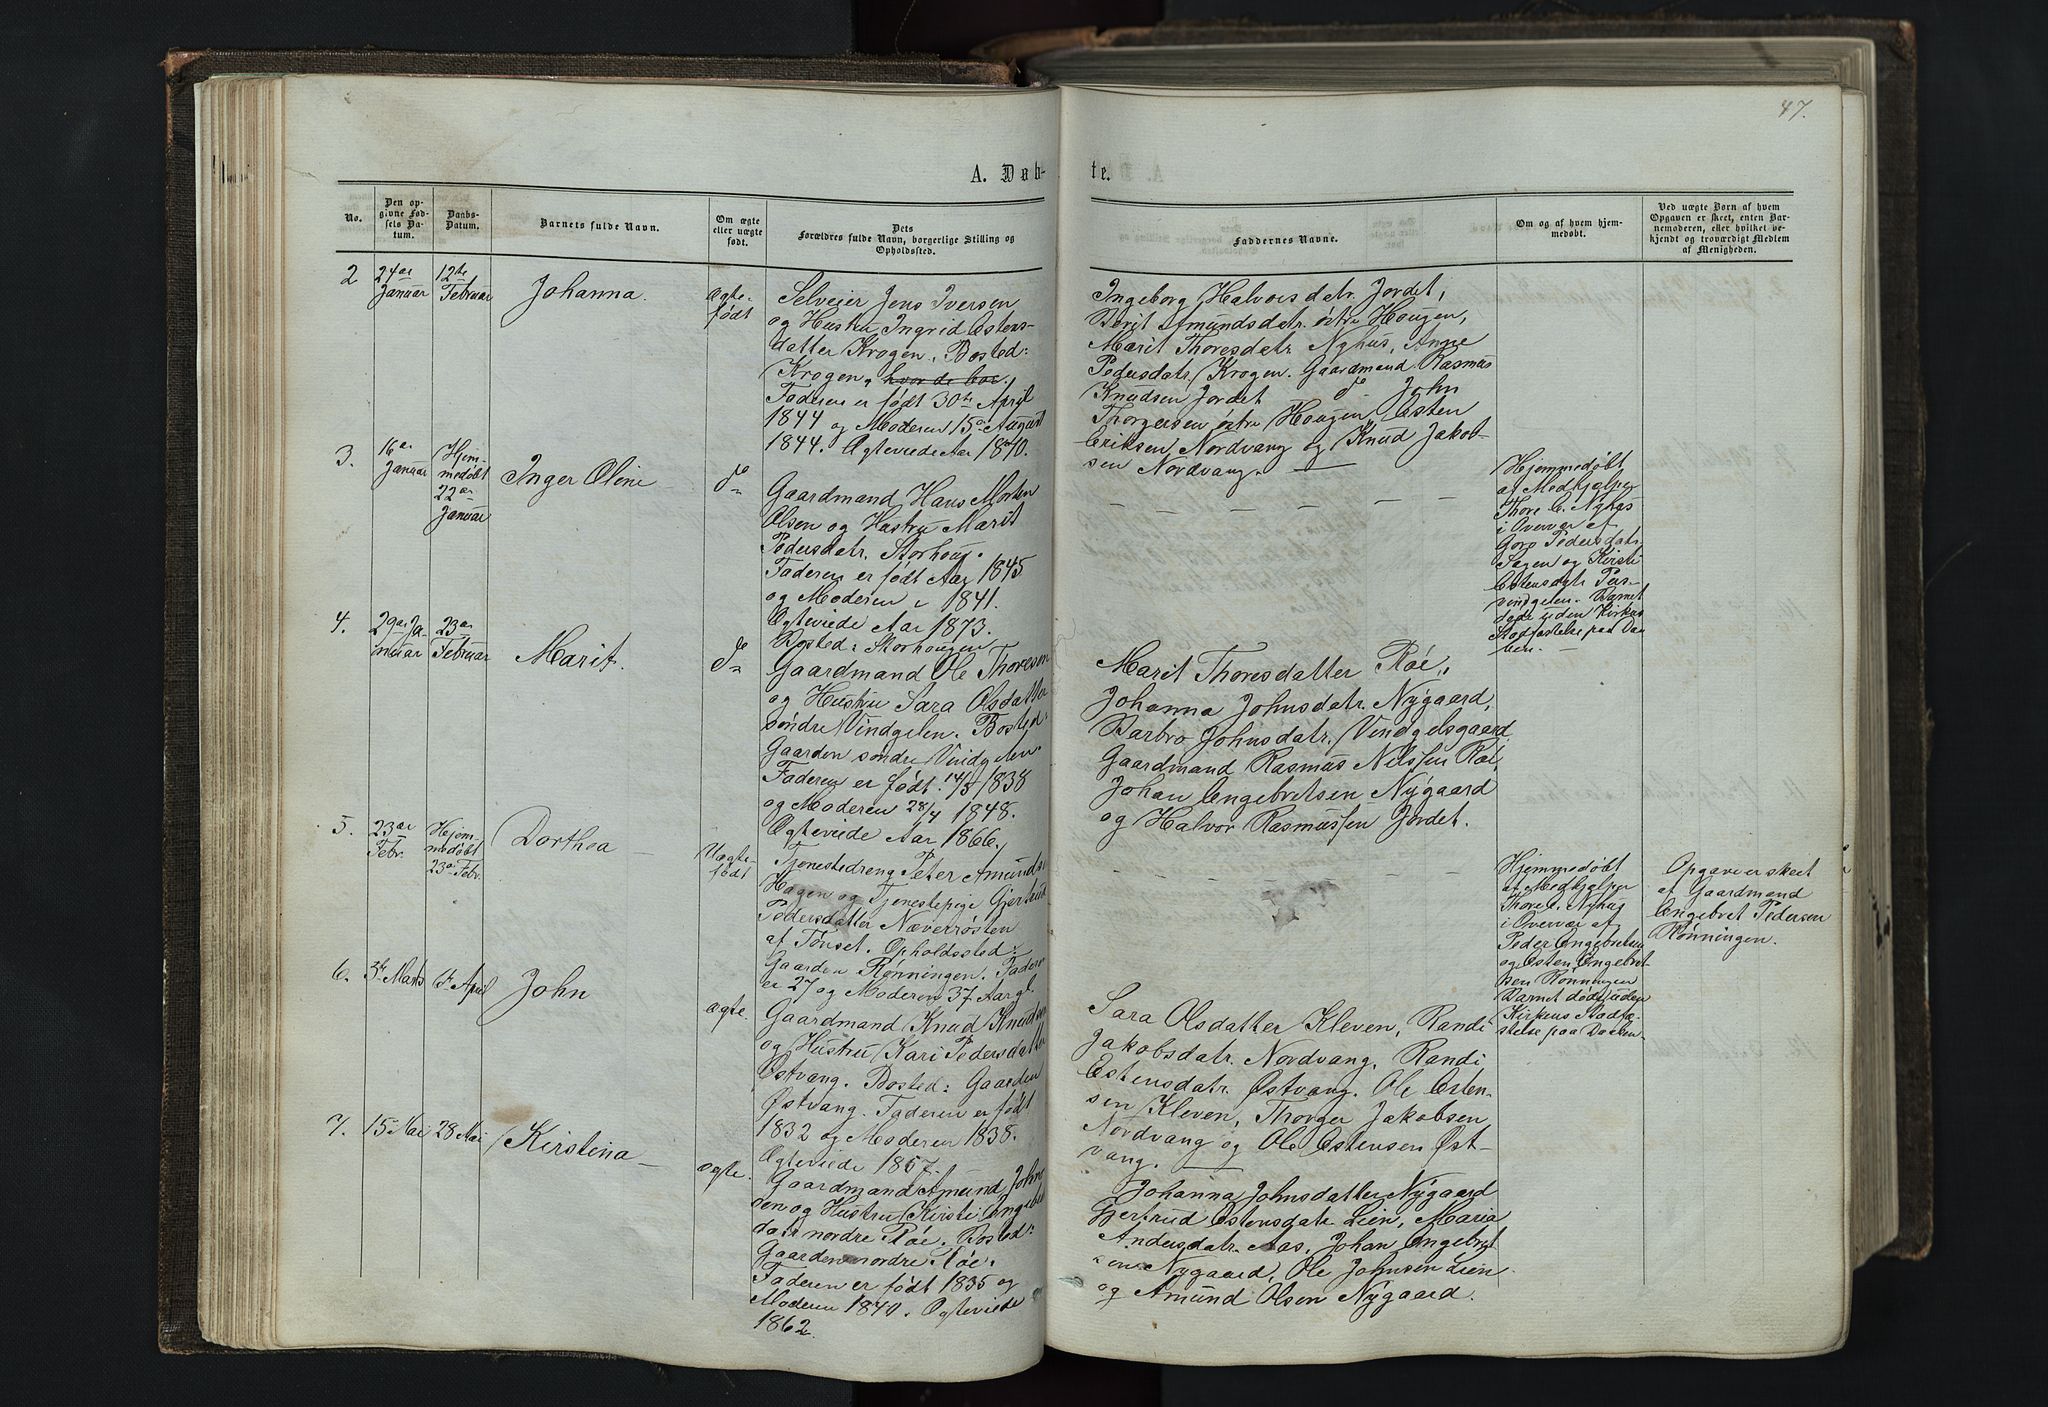 47.
A. Døb-
te.
No.
Den op-
givne Fød-
sels Da-
tum.
Daabs-
Datum.
Barnets fulde Navn.
Om ægte
eller uægte
født.
Dets
Forældres fulde Navn, borgerlige Stilling og
Opholdssted.
Faddernes Navne.
Om og af hvem hjem-
medøbt.
Ved uægte Børn af hvem
Opgaven er skeet, enten Bar-
nemoderen, eller hvilket ve-
kjendt og troværdigt Medlem
af Menigheden.
2
24de
Januar
12te
Februar
Johanna.
Ægte-
født
Selveier Jens Iversen
og Hustru Ingrid Estens-
datter Krogen. Bosted:
Krogen, hvor de bor.
Faderen er født 30te April
1844 og Moderen 15de August
1844. Egteviede Aar 1870.
Ingeborg Halvorsdatr. Jordet,
Berit Amundsdatr. østre Hougen,
Marit Thoresdatr. Nyhus, Anne
Pedersdatr. Krogen. Gaardmand Rasmus
Knudsen Jordet do John
Thorgersen østre Hougen, Esten
Eriksen Nordvang og Knud Jakob-
sen Nordvang.
3.
16de
Januar
Hjem-
medøbt
22de
Januar
Inger Oline
do
Gaardmand Hans Morten
Olsen og Hustru Marit
Pedersdatr. Storhoug.
Faderen er født Aar 1845
og Moderen i 1841.
Egteviede Aar 1873.
Bosted: Storhougen
Hjemmedøbt
af Medhjelper
Thore E. Nyhus
i Overvær af
Goro Pedersdatr.
Fagen og Kirsti
Estensdatr.
Vindgelen. Barnet
døde uden Kirkens
Stadfæstelse paa Daa
ben.
4.
29de Ja-
nuar
23de
Februar
Marit.
do
Gaardmand Ole Thoresen
og Hustru Sara Olsdatter
søndre Vindgelen. Bosted:
Gaarden søndre Vindgelen.
Faderen er født 14/8 1838
og Moderen 28/4 1848.
Egteviede Aar 1866.
Marit Thoresdatter Røe,
Johanna Johnsdatr. Nygaard,
Barbro Johnsdatr. Vindgelsgaard.
Gaardmand Rasmus Nilssen Røe,
Johan Engebretsen Nygaard
og Halvor Rasmussen Jordet.
5.
23de
Febr.
Hjem-
medøbt
23de Febr.
Dorthea
Uægte-
født
Tjenestedreng Peter Amunds.
Hagen og Tjenestepige Gjertrud
Pedersdatter Næverrøsten
af Tønset. Opholdssted:
Gaarden Rønningen. Fader
er 27 og Moderen 37 Aar gl.
Hjemmedøbt
af Medhjelper
Thore E. Nyhus
i Overvær af
Peder Engebretsen
og Esten Engebret-
sen Rønningen
Barnet døde uden
Kirkens Stadfæ-
stelse paa Daaben
Opgave er skeet
af Gaardmand
Engebret Pedersen
Rønningen.
6.
3de Marts
6te April
John
ægte.
Gaardmand Knud Knudsen
og Hustru Kari Pedersdatter
Østvang. Bosted: Gaarden
Østvang. Faderen er født
1832 og Moderen 1838.
Egteviede 1857.
Sara Olsdatter Kleven, Randi
Jakobsdatr. Nordvang, Randi
Estensdatr. Østvang. Ole Esten-
sen Kleven, Thorger Jakobsen
Nordvang og Ole Estensen Øst-
vang.
7.
15de Mai
28 Mai
Kirstina
ægte.
Gaardmand Amund John-
sen og Hustru Kirsti Engebret
datr nordre Røe. Bosted:
Gaarden nordre Røe.
Faderen er født 1835 og
Moderen 1840. Egteviede
1862.
Johanna Johnsdatter Nygaard
Gjertrud Estensdatr. Lien, Maria
Andersdatr. Aas, Johan Engebret
sen Nygaard, Ole Johnsen Lien
og Amund Olsen Nygaard.